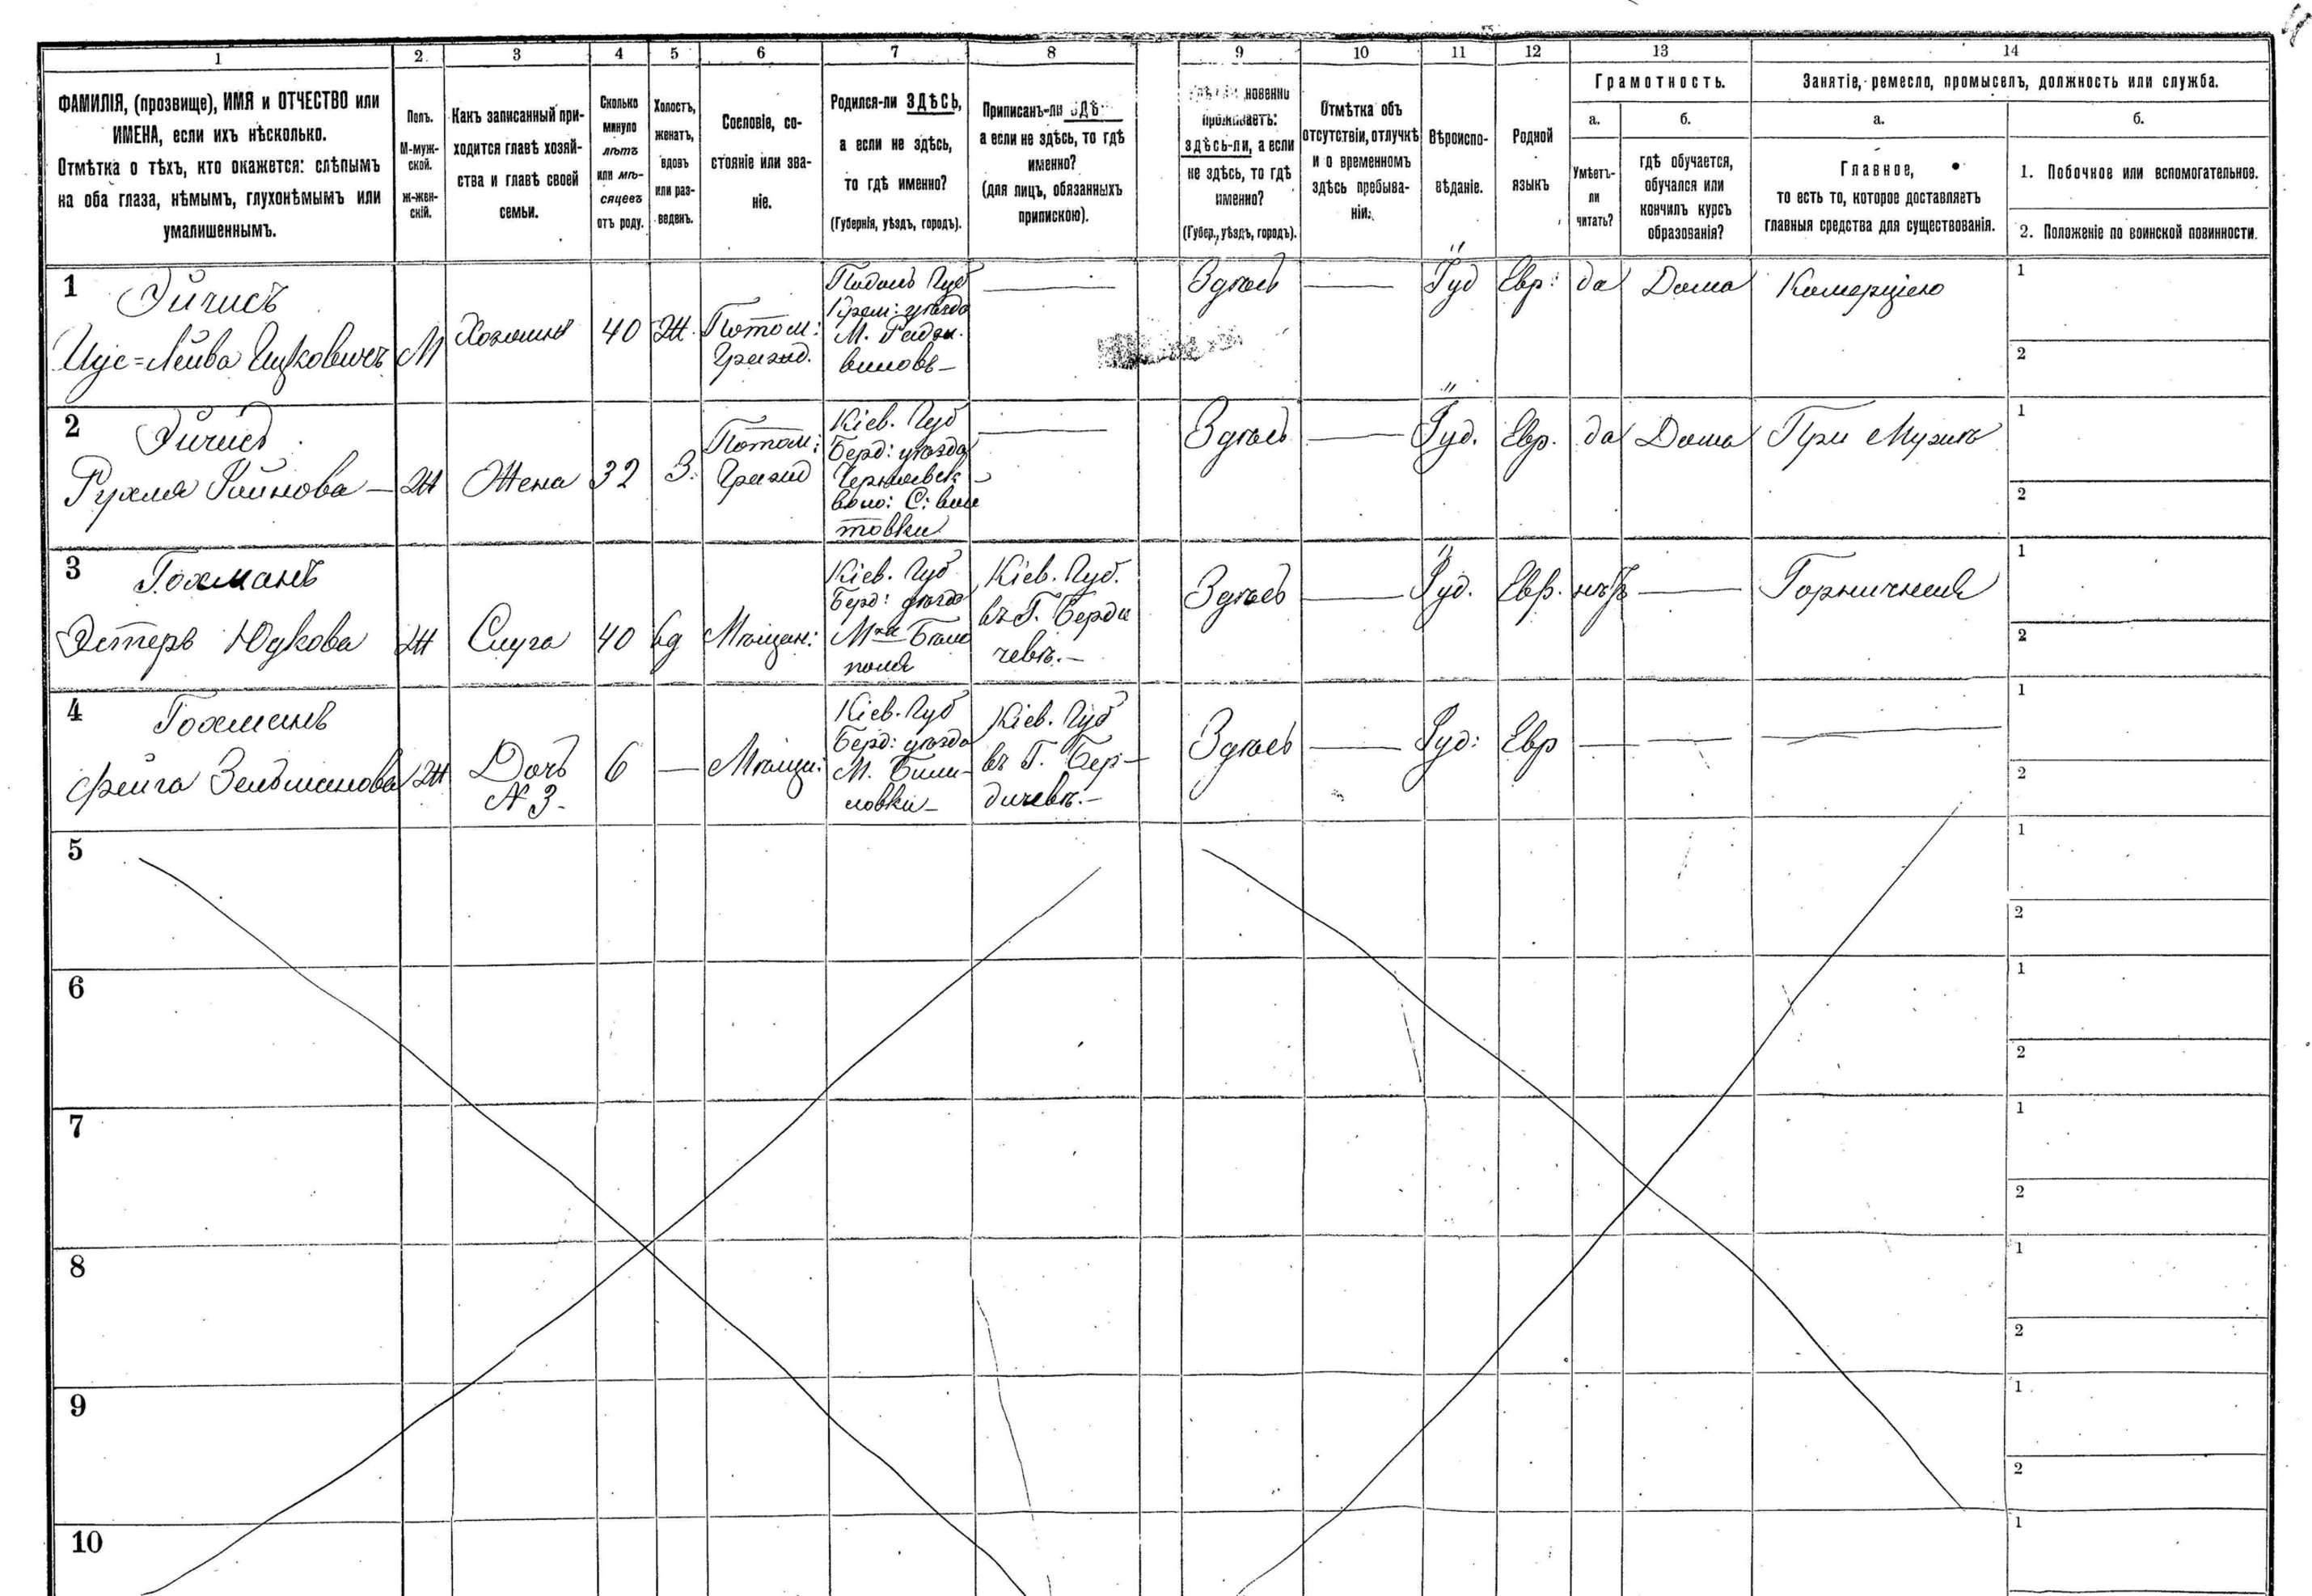 1 2 3 4 5 6 7 8 9 10 11 12 13 14
ФАМИЛІЯ, (прозвище), ИМЯ и ОТЧЕСТВО или
ИМЕНА, если ихъ нѣсколько.
Отмѣтка о тѣхъ, кто окажется: слѣпымъ
на оба глаза, нѣмымъ, глухонѣмымъ или
умалишеннымъ.
Полъ.
М-муж-
ской.
ж-жен-
скій.
Какъ записанный при-
ходится главѣ хозяй-
ства и главѣ своей
семьи.
Сколько
минуло
лѣтъ
или мѣ-
сяцевъ
отъ роду.
Холостъ,
женатъ,
вдовъ
или раз-
веденъ.
Сословіе, со-
стояніе или зва-
ніе.
Родился-ли ЗДѢСЬ,
а если не здѣсь,
то гдѣ именно?
(Губернія, уѣздъ, городъ).
Приписанъ-ли ЗДѢ
а если не здѣсь, то гдѣ
именно?
(для лицъ, обязанныхъ
припискою).
новенно
проживаетъ:
здѣсь-ли, а если
не здѣсь, то гдѣ
именно?
(Губер., уѣздъ, городъ).
Отмѣтка объ
отсутствіи, отлучкѣ
и о временномъ
здѣсь пребыва-
ніи.
Вѣроиспо-
вѣданіе.
Родной
языкъ
Грамотность.
а.
Умѣетъ-
ли
читать?
б.
гдѣ обучается,
обучался или
кончилъ курсъ
образованія?
Занятіе, ремесло, промыселъ, должность или служба.
а.
Главное,
то есть то, которое доставляетъ
главныя средства для существованія.
б.
1. Побочное или вспомогательное.
2. Положеніе по воинской повинности.
1
Эйчисъ
Лейва Ицковичъ
М
Хозяинъ
40
Ж.
Потом:
Гражд.
Подол. Губ
уѣзда
М.
Здѣсь
—
Іуд
Евр:
да
Дома
Комерціею
1
2
2
Эйчисъ
Рухля
Ж
Жена
32
З.
Потом:
Гражд
Кіев. Губ
Берд: уѣзда
С:
товки
Здѣсь
—
Іуд.
Евр.
да
Дома
При Мужѣ
1
2
3
Гохманъ
Эстеръ Юдкова
Ж
Слуга
40
вд
Мѣщан:
Кіев. Губ
Берд: уѣзда
поля
Кіев. Губ.
въ Г. Берди
чевѣ.—
Здѣсь
—
Іуд.
Евр.
нѣтъ
—
Горничная
1
2
4
Гохманъ
Фейга Зельмановa
Ж
Дочь
№ 3.
6
—
Мѣщан:
Кіев. Губ
Берд: уѣзда
М. Били-
ловки—
Кіев. Губ
въ Г. Бер—
дичевѣ.—
Здѣсь
—
Іуд:
Евр
—
1
2
5
1
2
6
1
2
7
1
2
8
1
2
9
1
2
10
1